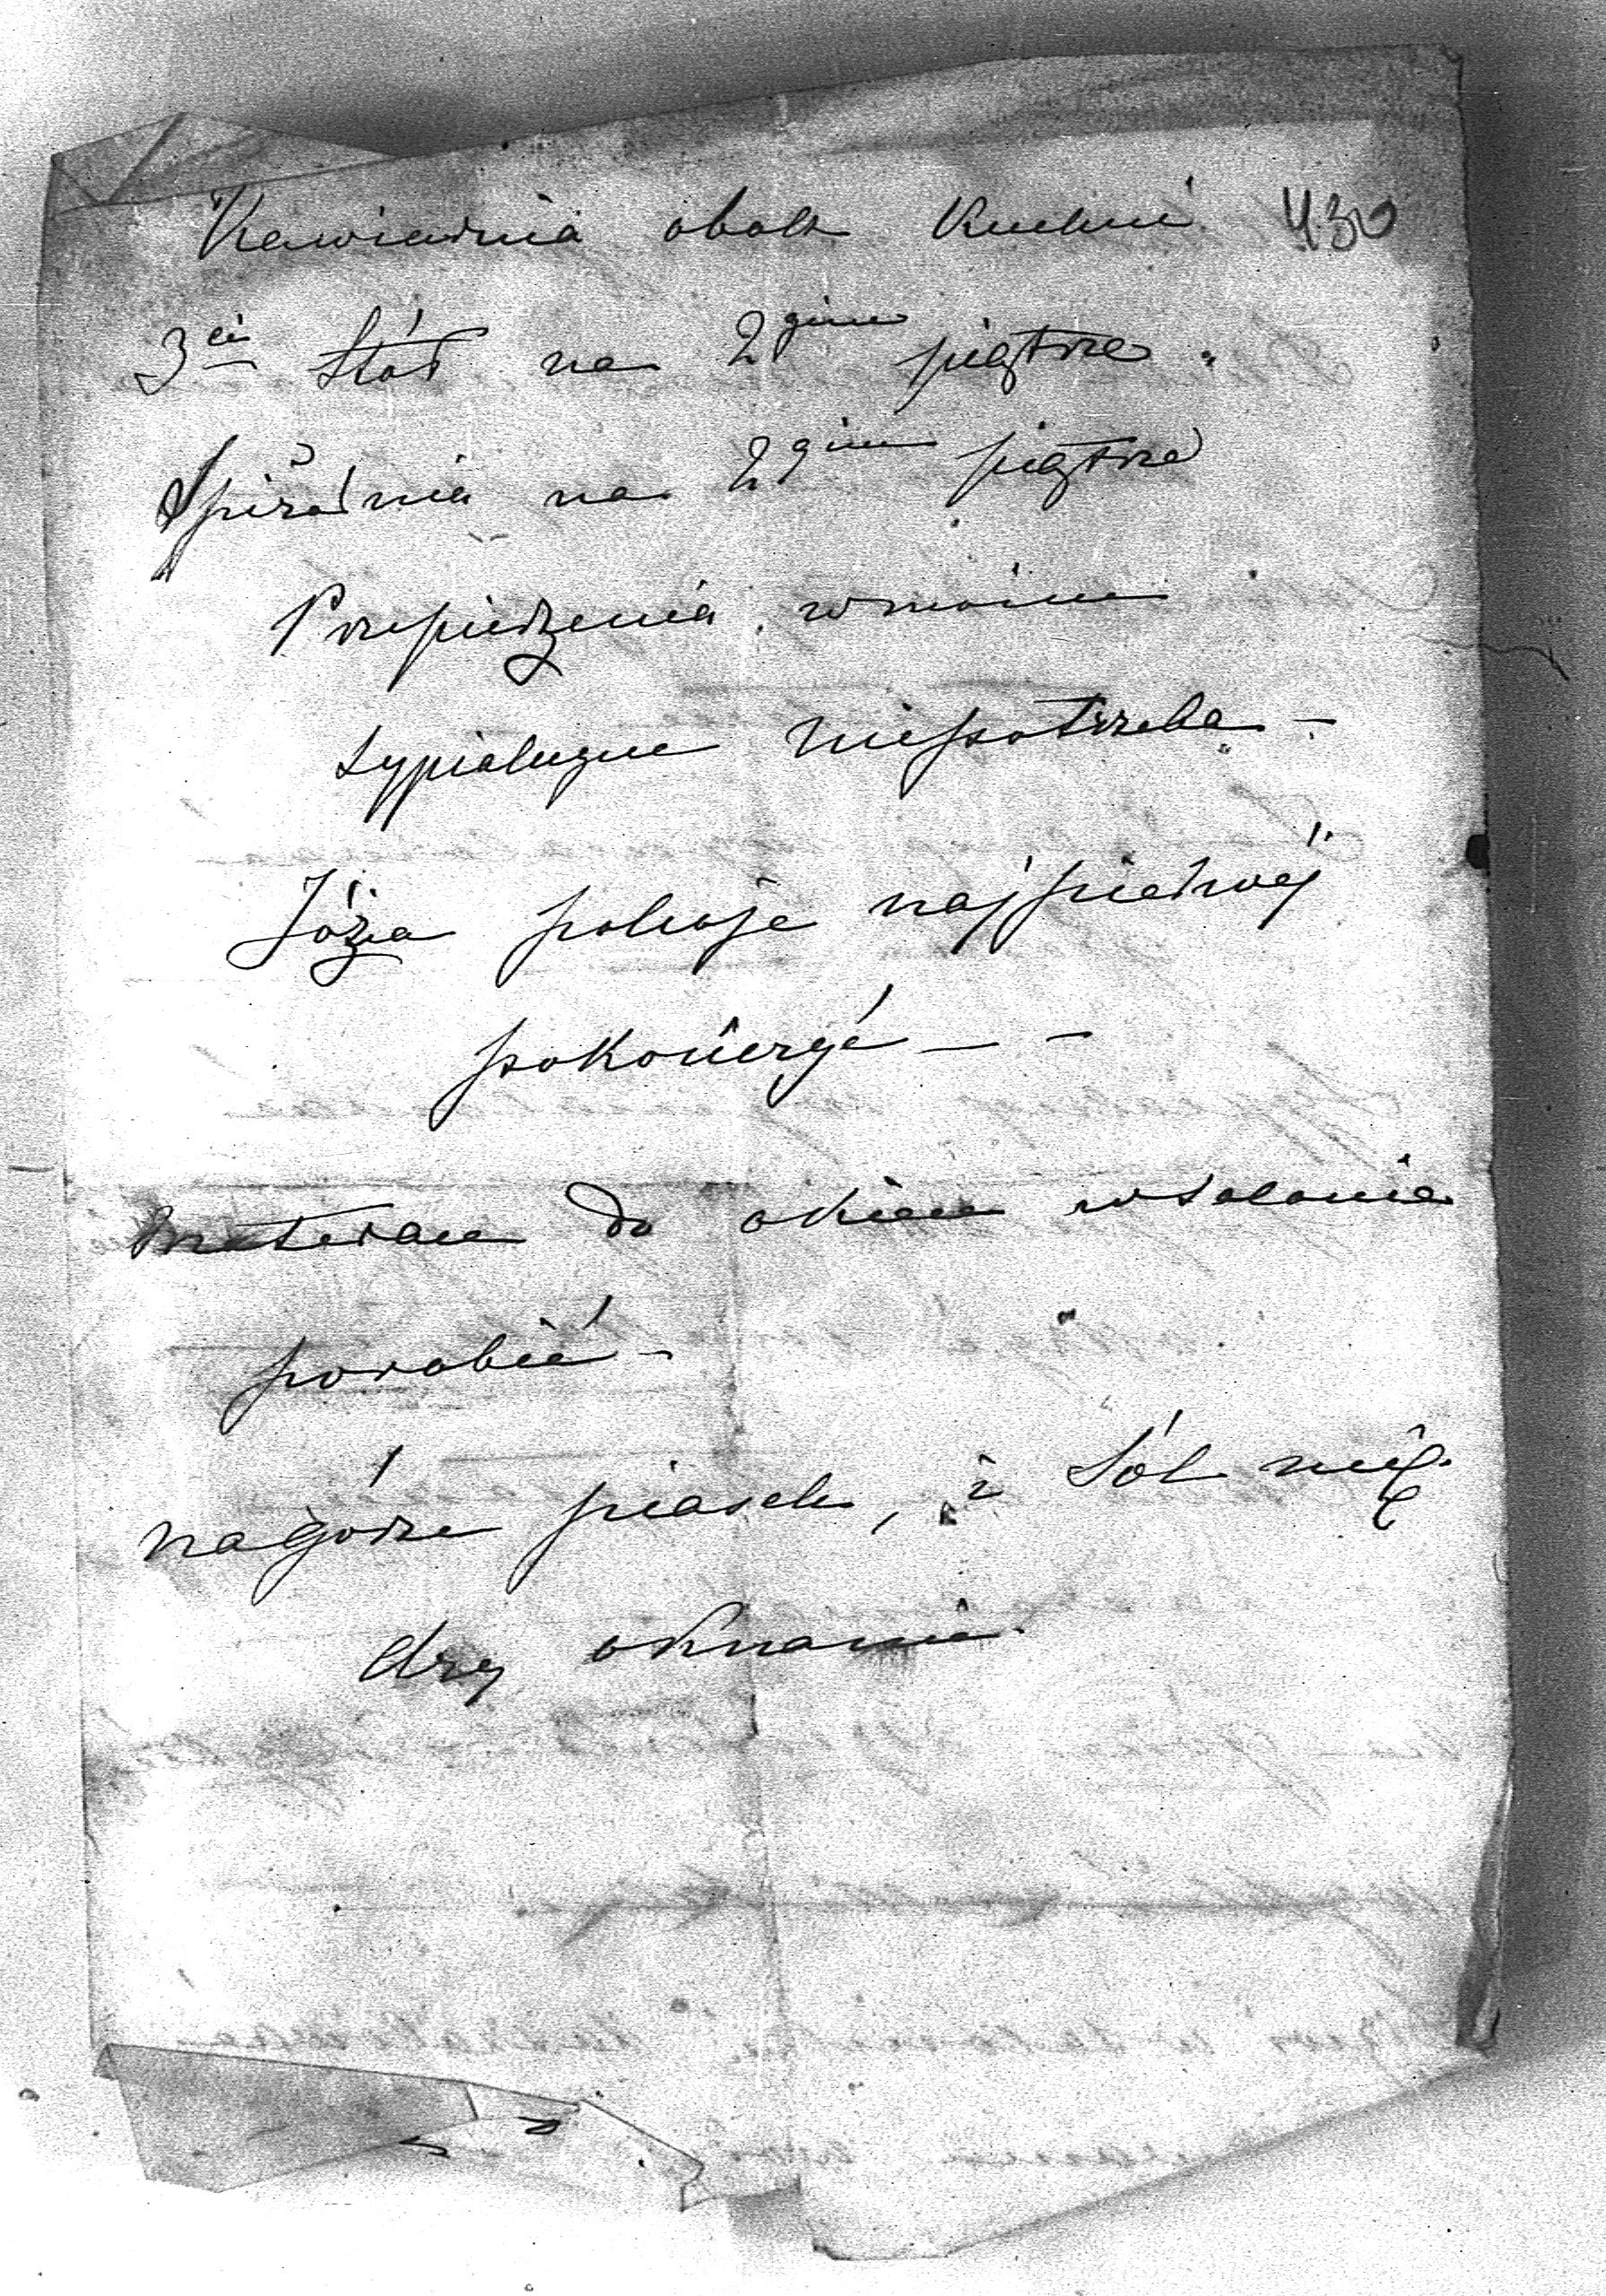 Kawiarnia obok Kuchni 430
3ci Stół na 2gim piętrze.
Spiżarnia na 2gim piętrze
Przepierzenia w moim
sypialnym niepotrzeba –
Józia pokoje najpierwéj
pokończyć – –
materace do okien w salonie
porobić –
na górze piasek, i Sól mię
dzy oknami.